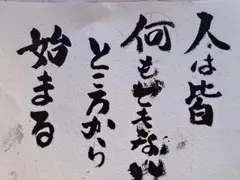 人は皆
何もできない
ところから
始まる